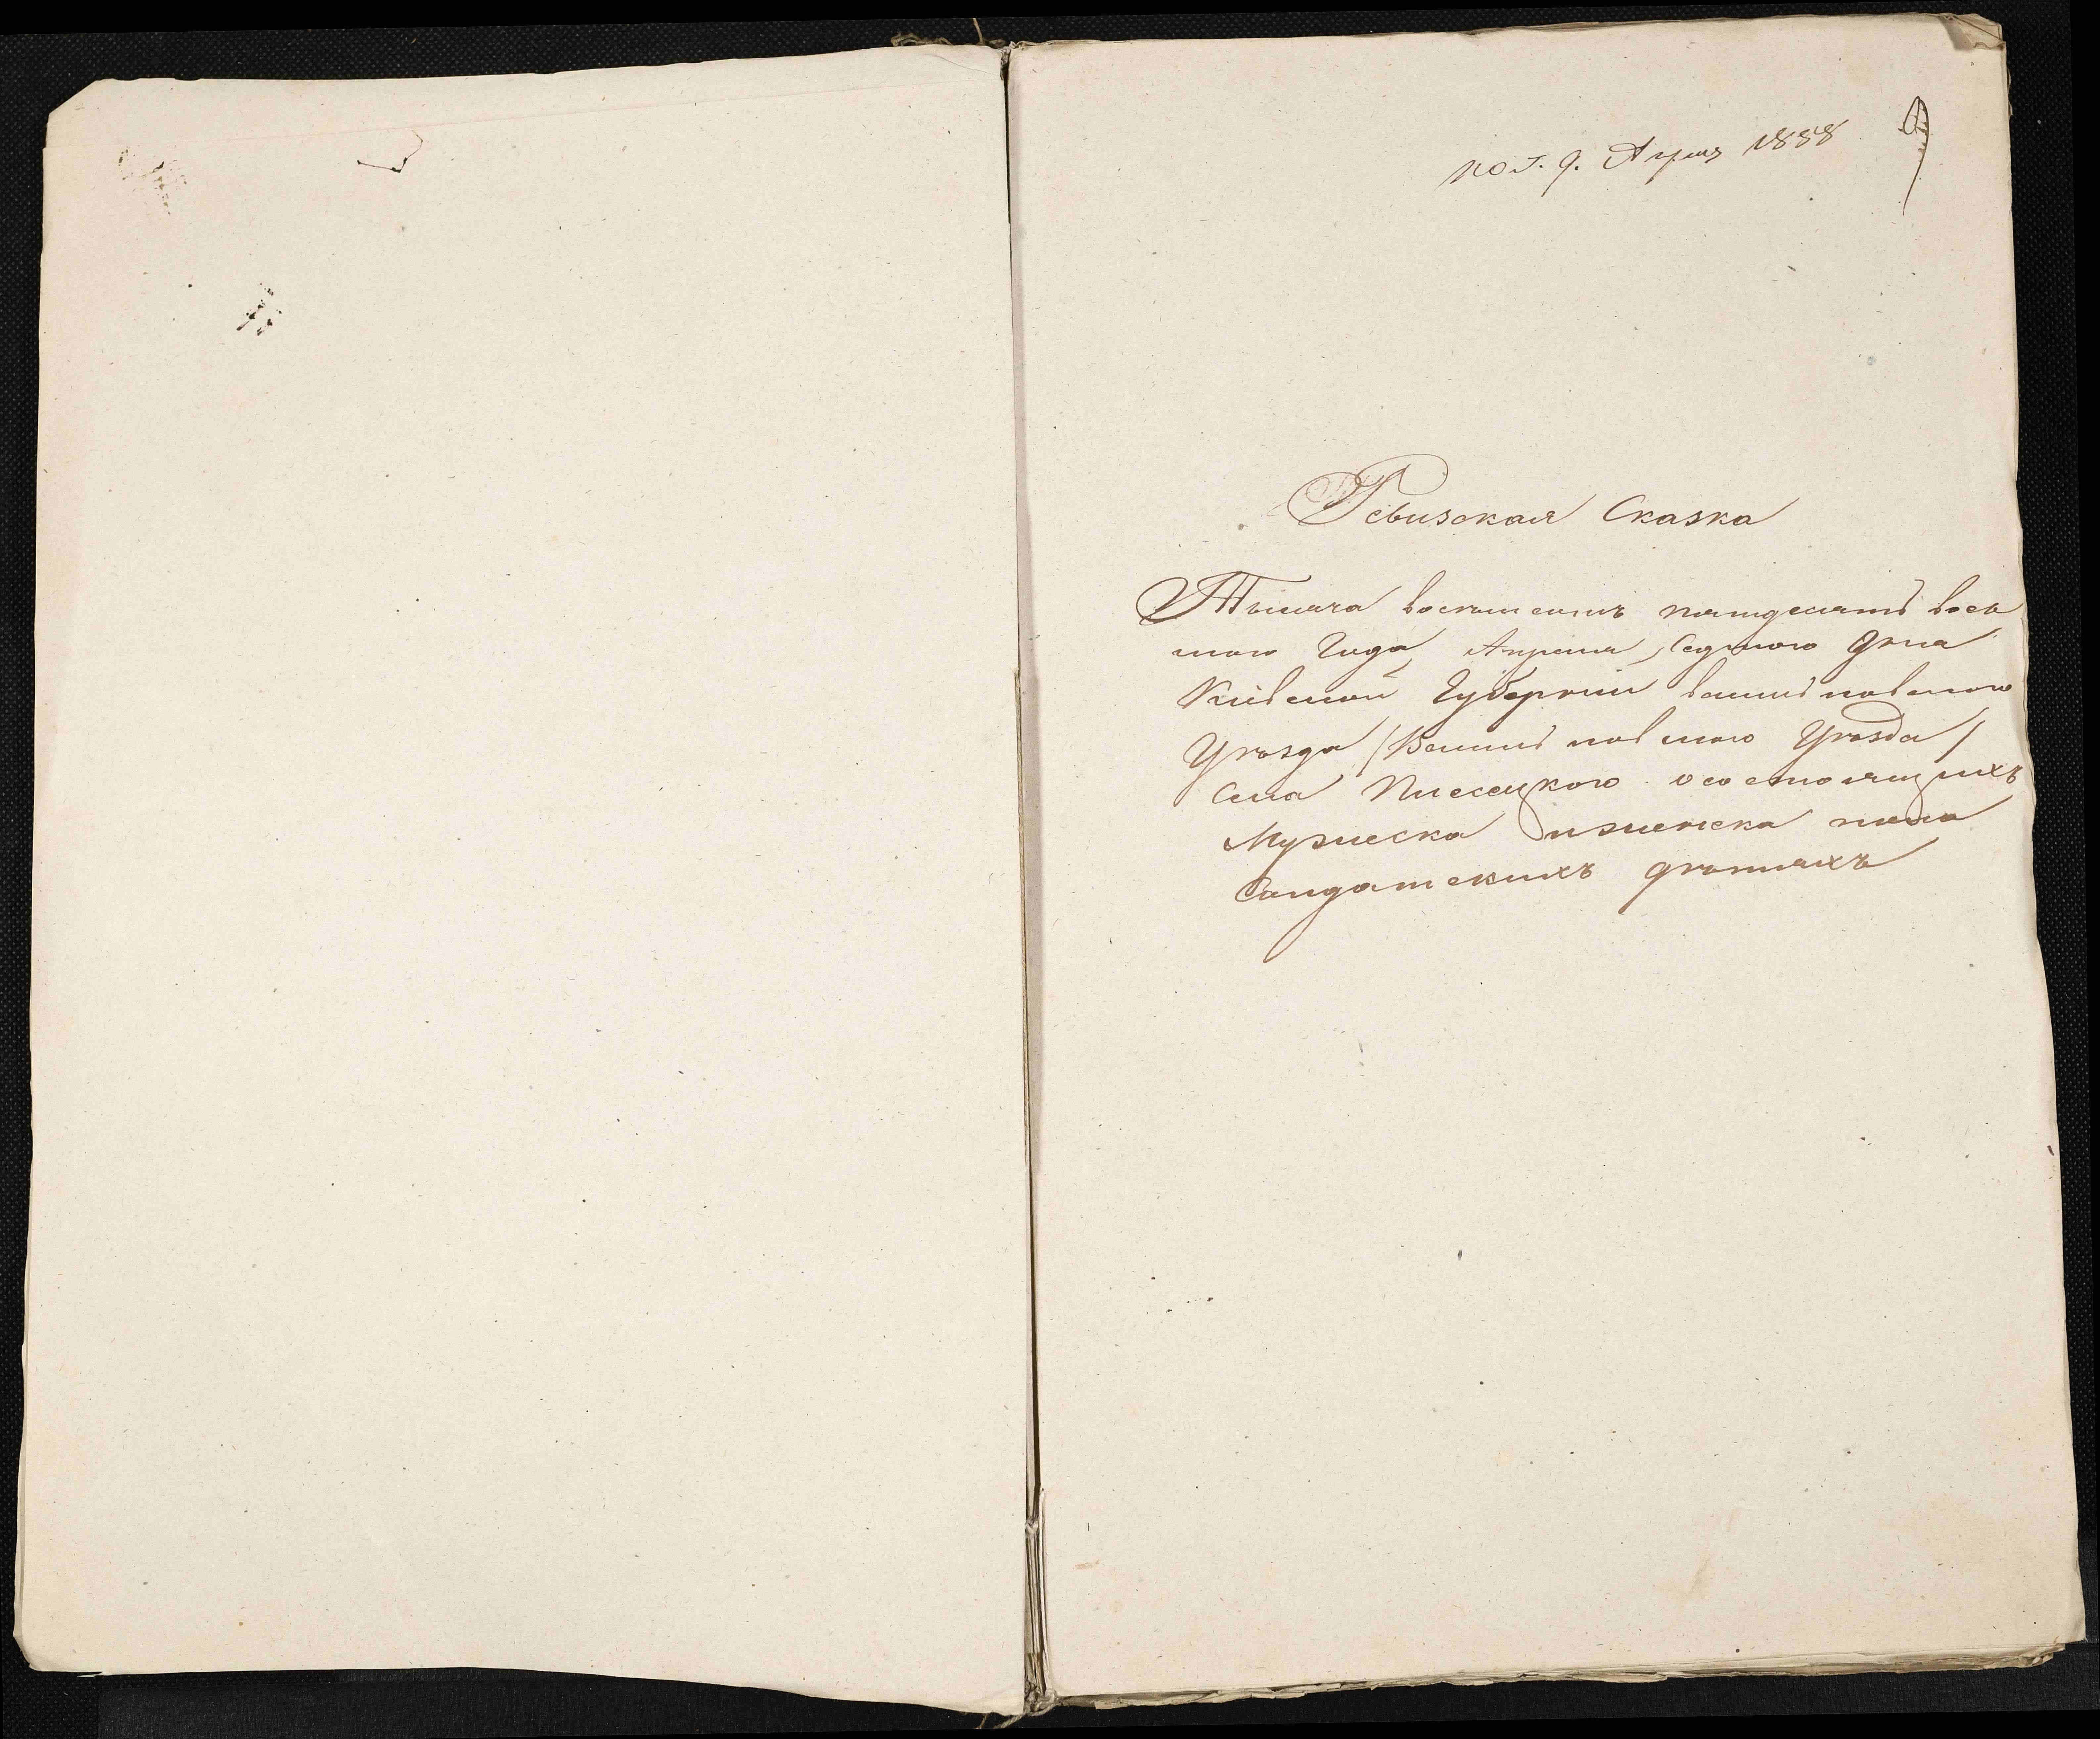 пол. 9. Апреля 1858
9
Ревизская Сказка
Тысяча восемьсотъ пятдесятъ вось
мого Года, Апреля, седмого дня
Киевской Губернии василковского
Уезда /Василковского Уезда/
Села Плесецкого о состоящихъ
Мужеска и женска пола
Салдатскихъ детяхъ